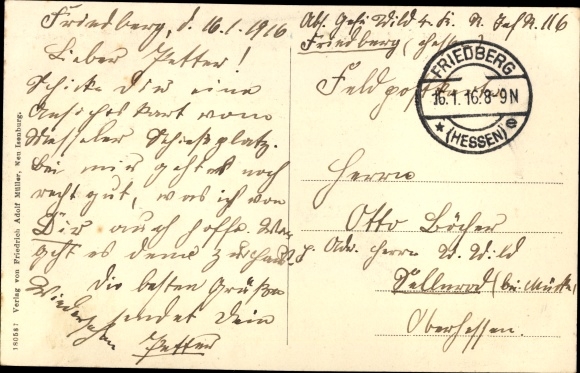 Friedberg, d. 16.1.1916
Lieber Petter!
Schicke Dir eine
Ansichtskart vom
Messeler Schießplatz.
Bei mir geht es noch
recht gut, was ich von
Dir auch hoffe. Wie
geht es denn zu Haus?
Die besten Grüße
sendet Dein
Petter
Wiedersehen
Abs. Gefr. Wild 4. K. R. Inf. R. 116
Friedberg (Hessen)
Feldpostkarte
FRIEDBERG
16.1.16.8-9N
★ (HESSEN) e
Herrn
Otto Böcher
p. Adr. Herrn W. Wild
Sellnrod (bei Mücke)
Oberhessen.
180587 Verlag von Friedrich Adolf Müller, Neu Isenburg.